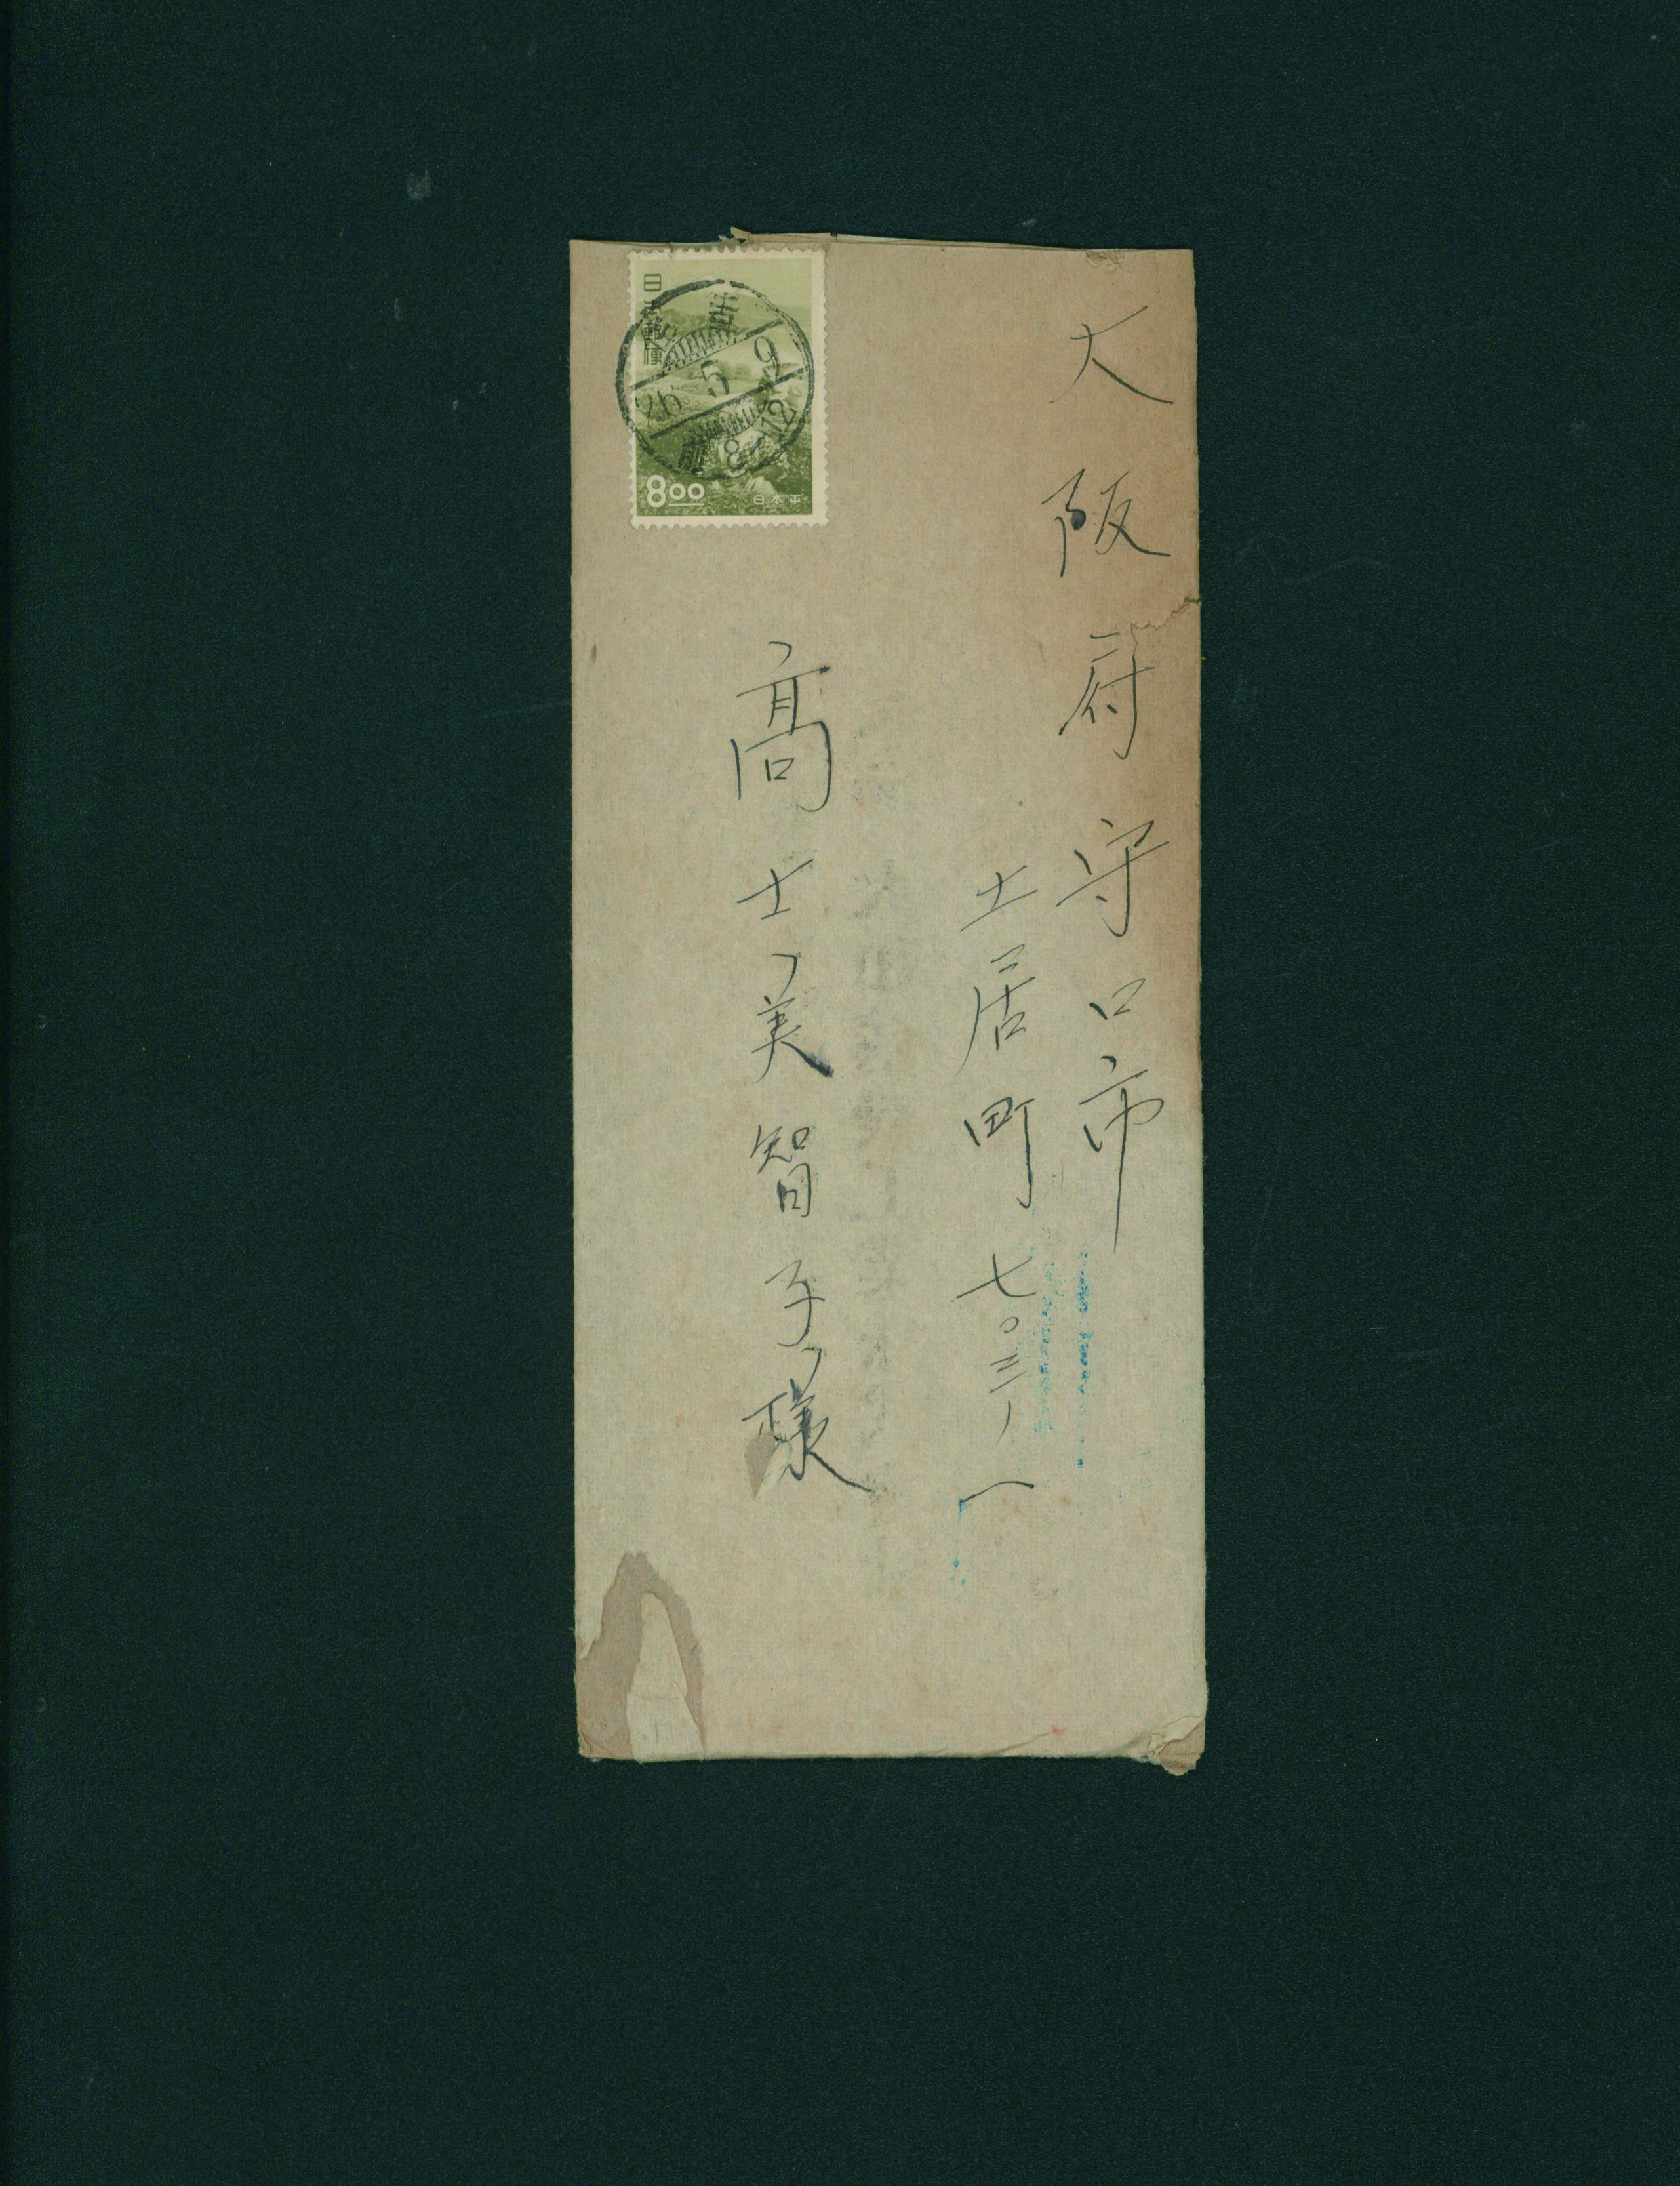 大阪府守口市
土居町七〇三ノ一
高士美智子様
日本郵便
26 5 9
前 8-12
8.00
日本平